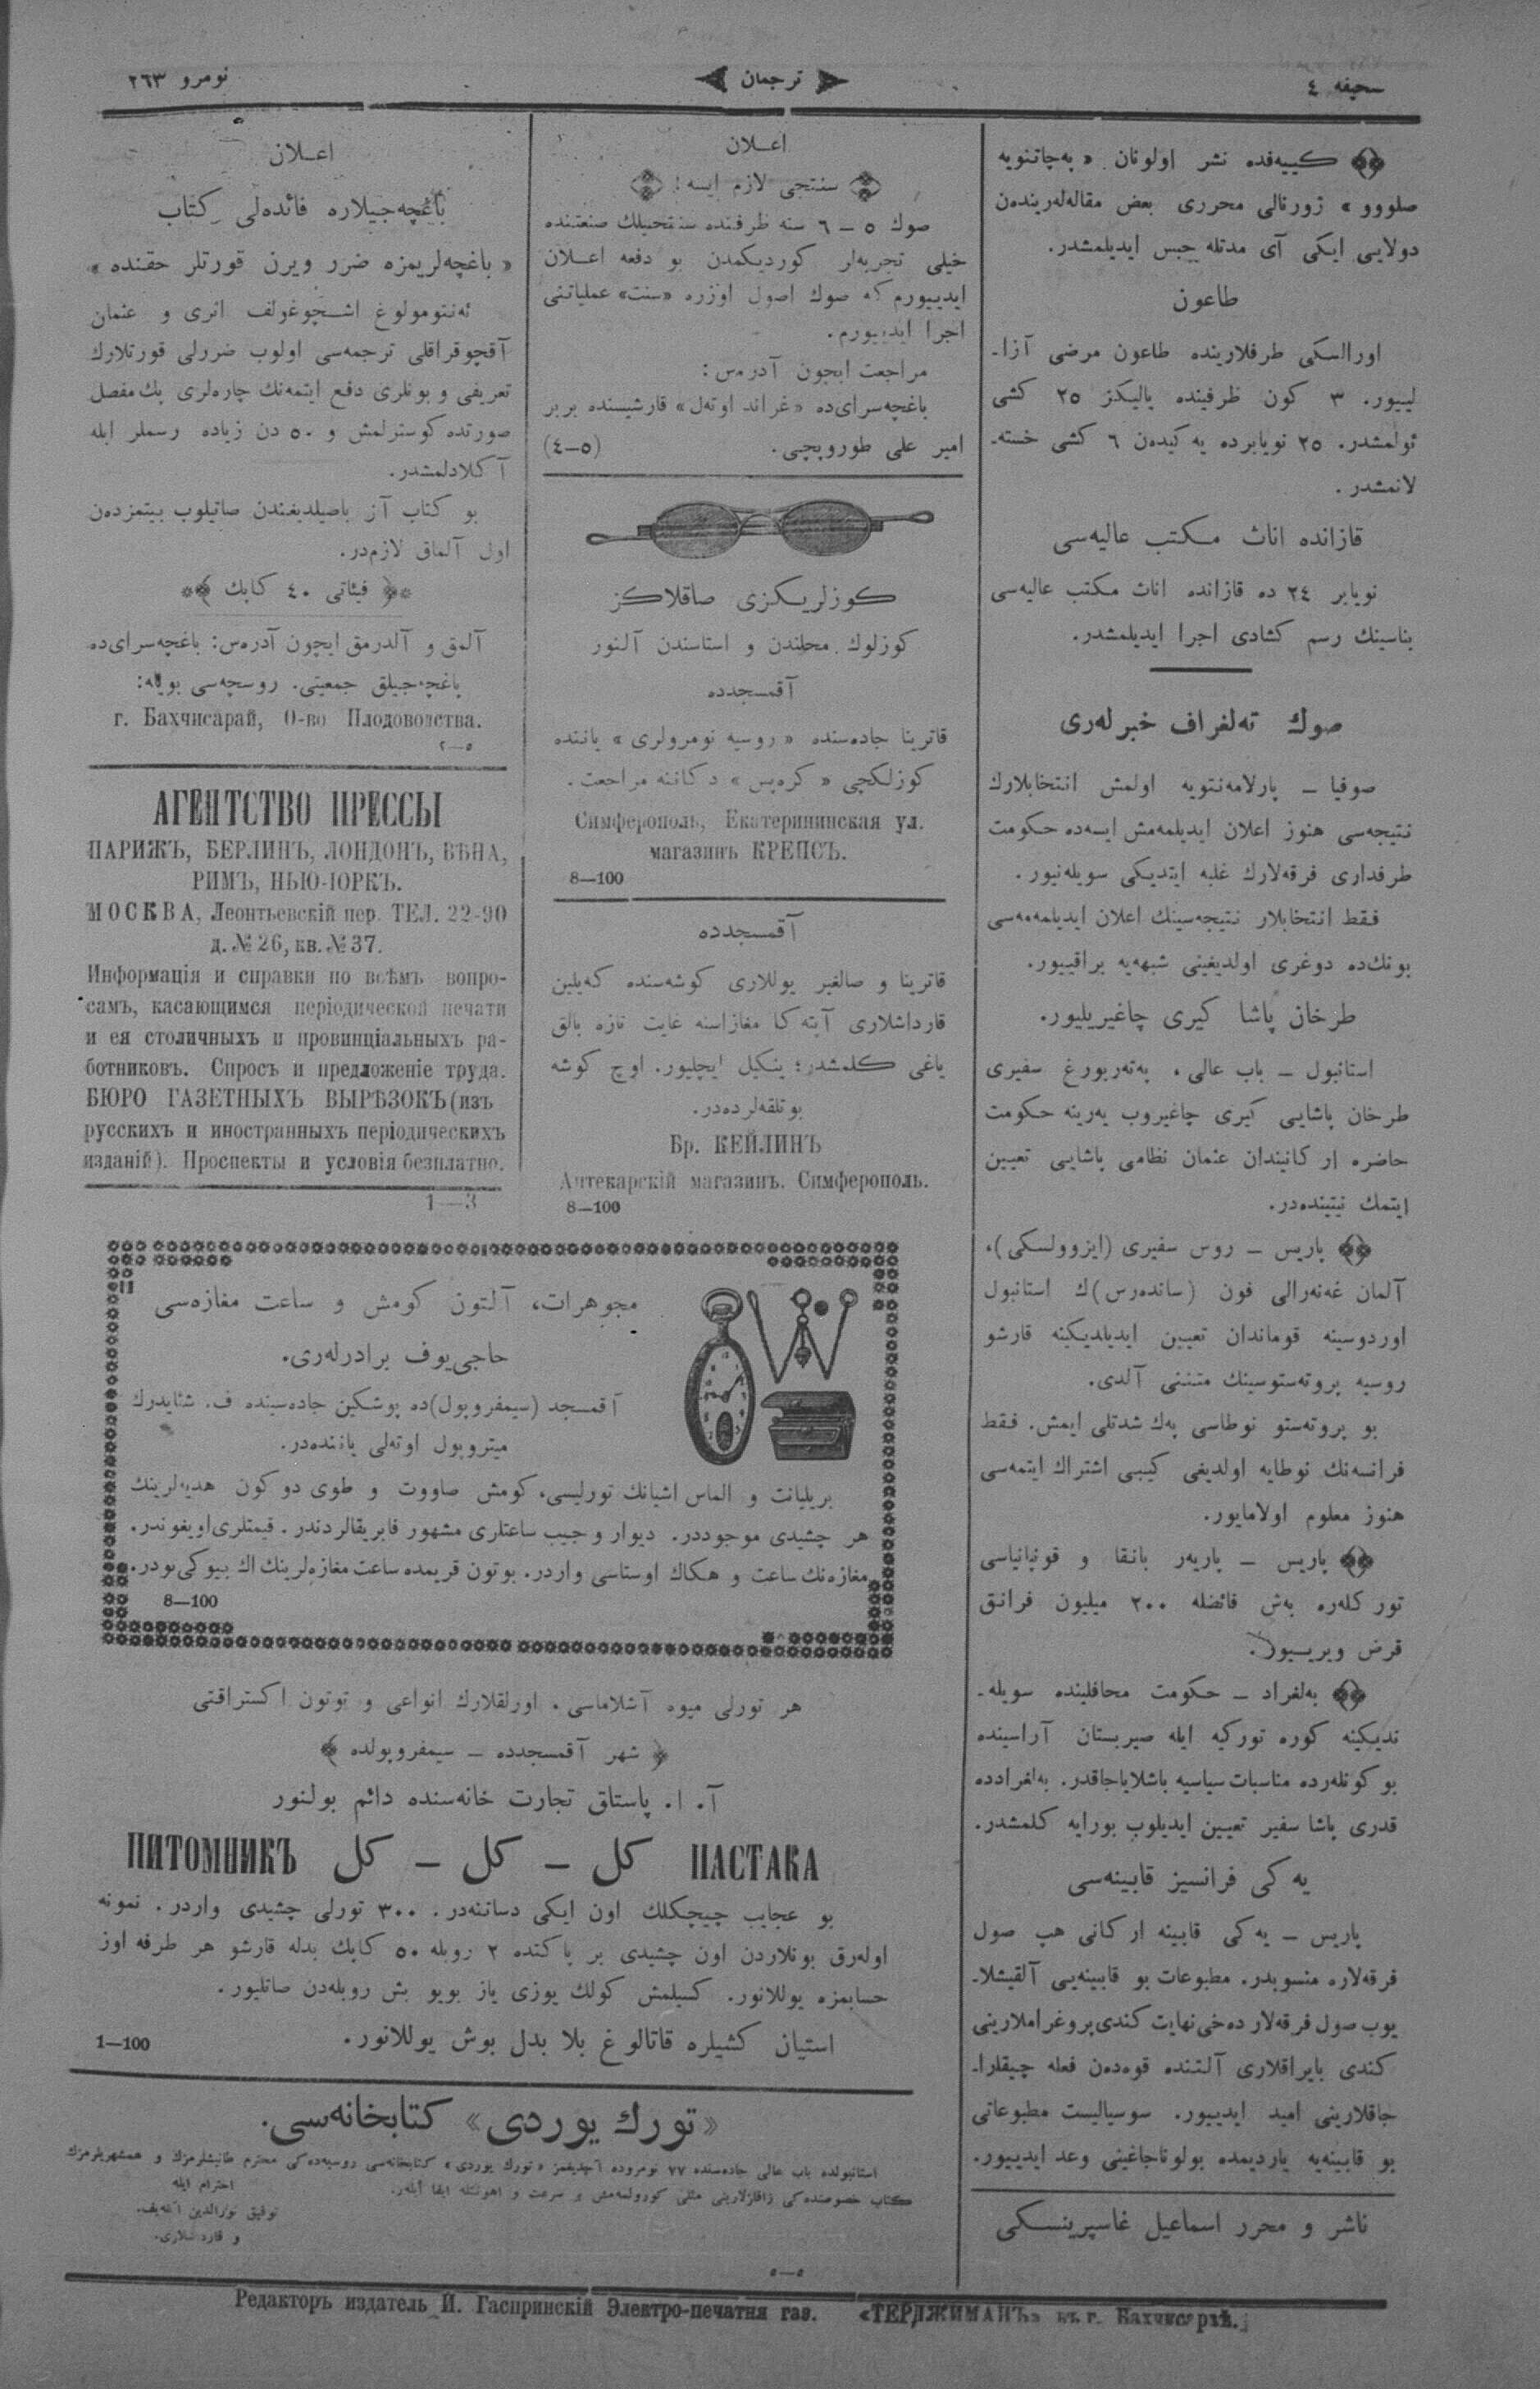 صحیفه ٤
ترجمان
نومرو ٢٦٣
كییه‌فده نشر اولونان «په‌چاتنویه
صلووو» ژورنالی محرری بعض مقاله‌لریندەن
دولایی ایكی آی مدتله حبس ایدیلمشدر.
طاعون
اورالسكی طرفلارینده طاعون مرضی آزا-
لییور. ٣ كون ظرفینده یالیكز ٢٥ كشی
ئولمشدر. ٢٥ نویابرده یه‌كیدەن ٦ كشی خسته-
لانمشدر.
قازانده اناث مكتب عالیه‌سی
نویابر ٢٤ ده قازانده اناث مكتب عالیه‌سی
بناسینك رسم كشادی اجرا ایدیلمشدر.
صوك ته‌لغراف خبرلەری
صوفیا – پارلامه‌نتویه اولمش انتخابلارك
نتیجه‌سی هنوز اعلان ایدیلمه‌مش ایسه‌ده حكومت
طرفداری فرقه‌لارك غلبه ایتدیكی سویله‌نیور.
فقط انتخابلار نتیجه‌سینك اعلان ایدیلمه‌مه‌سی
بونك‌ده دوغری اولدیغینی شبهه‌یه براقییور.
طرخان پاشا كیری چاغیریلیور.
استانبول – باب عالی، په‌تەربورغ سفیری
طرخان پاشایی كیری چاغیروب یه‌رینه حكومت
حاضره اركانیندان عثمان نظامی پاشایی تعیین
ایتمك نیتینده‌در.
پاریس – روس سفیری (ایزوولسكی)،
آلمان غه‌نه‌رالی فون (ساندەرس)ك استانبول
اوردوسینه قوماندان تعیین ایدیلدیكینه قارشو
روسیه پروته‌ستوسینك متننی آلدی.
بو پروته‌ستو نوطاسی پەك شدتلی ایمش. فقط
فرانسه‌نك نوطایه اولدیغی كیبی اشتراك ایتمه‌سی
هنوز معلوم اولامایور.
پاریس – پاریه‌ر بانقا و قونپانیاسی
توركلەره بەش فائضله ٢٠٠ میلیون فرانق
قرض ویریییور.
بەلغراد – حكومت محافلینده سویله-
ندیكینه كوره توركیه ایله صیربستان آراسینده
بو كونلەرده مناسبات سیاسیه باشلایاجاقدر. بەلغرادده
قدری پاشا سفیر تعیین ایدیلوب بورایه كلمشدر.
یه‌كی فرانسیز قابینه‌سی
پاریس – یه‌كی قابینه اركانی هپ صول
فرقه‌لاره منسوبدر. مطبوعات بو قابینه‌یی آلقیشلا-
یوب صول فرقه‌لار دەخی نهایت كندی پروغراملارینی
كندی بایراقلاری آلتنده قوەدەن فعله چیقلارا-
جاقلارینی امید ایدییور. سوسیالیست مطبوعاتی
بو قابینه‌یه یاردیمده بولوناجاغینی وعد ایدییور.
ناشر و محرر اسماعیل غاسپرینسكی
اعـلان
سنتجی لازم ایسه!
صوك ٥ – ٦ سنه ظرفنده سنتجیلك صنعتنده
خیلی تجربه‌لر كوردیكمدن بو دفعه اعـلان
ایدییورم كه صوك اصول اوزره «سنت» عملیاتنی
اجرا ایدییورم.
مراجعت ایچون آدرەس:
باغچه‌سرای‌ده «غراند اوتەل» قارشیسنده بربر
امیر علی طوروپچی. (٥–٤)
كوزلریكزی صاقلاكز
كوزلوك محلندن و استاسندن آلنور
آقمسجدده
قاترینا جاده‌سنده «روسیه نومرولری» یاننده
كوزلكچی «كرەپس» دكاننه مراجعت.
Симферополь, Екатерининская ул.
магазинъ КРЕПСЪ.
8—100
آقمسجدده
قاترینا و صالغیر یوللاری كوشه‌سنده كەیلین
قارداشلاری آپته‌كا مغازاسنه غایت تازه بالق
یاغی كلمشدر؛ ینكیل ایچلیور. اوچ كوشه
بوتلقه‌لرده‌در.
Бр. КЕЙЛИНЪ
Аптекарскій магазинъ. Симферополь.
8—100
اعـلان
باغچه‌جیلاره فائده‌لی كتاب
«باغچه‌لریمزه ضرر ویرن قورتلر حقنده»
ئەنتومولوغ اشچوغولف اثری و عثمان
آقچوقراقلی ترجمه‌سی اولوب ضررلی قورتلارك
تعریفی و بونلری دفع ایتمه‌نك چاره‌لری پك مفصل
صورتده كوسترلمش و ٥٠ دن زیاده رسملر ایله
آكلادلمشدر.
بو كتاب آز باصیلدیغندن صاتیلوب بیتمزدەن
اول آلماق لازمدر.
فیئاتی ٤٠ كاپك
آلمق و آلدرمق ایچون آدرەس: باغچه‌سرای‌ده
باغچه‌جیلق جمعیتی. روسچه‌سی بویله:
г. Бахчисарай, О-во Плодоводства.
٥—٢
АГЕНТСТВО ПРЕССЫ
ПАРИЖЪ, БЕРЛИНЪ, ЛОНДОНЪ, ВѢНА,
РИМЪ, НЬЮ-ІОРКЪ.
МОСКВА, Леонтьевскій пер. ТЕЛ. 22-90
д. № 26, кв. № 37.
Информація и справки по всѣмъ вопро-
самъ, касающимся періодической печати
и ея столичныхъ и провинціальныхъ ра-
ботниковъ. Спросъ и предложеніе труда.
БЮРО ГАЗЕТНЫХЪ ВЫРѢЗОКЪ (изъ
русскихъ и иностранныхъ періодическихъ
изданій). Проспекты и условія безплатно.
1—3
مجوهرات، آلتون كومش و ساعت مغازه‌سی
حاجی‌یوف برادرلەری.
آقمسجد (سیمفروپول)ده پوشكین جاده‌سینده ف. شنایدرك
میتروپول اوتەلی یاننده‌در.
بریلیانت و الماس اشیانك تورلیسی، كومش صاووت و طوی دوكون هدیه‌لرینك
هر چشیدی موجوددر. دیوار و جیب ساعتلری مشهور فابریقالردندر. قیمتلری اویغوندر.
مغازه‌نك ساعت و هكاك اوستاسی واردر. بوتون قریمده ساعت مغازه‌لرینك اك بیوكی بودر.
8—100
هر تورلی میوه آشلاماسی، اورلقلارك انواعی و توتون اكستراقتی
شهر آقمسجدده – سیمفروپولده
آ. ا. پاستاق تجارت خانه‌سنده دائم بولنور
ПИТОМНИКЪ كل – كل – كل ПАСТАКА
بو عجایب چیچكلك اون ایكی دساتنه‌در. ٣٠٠ تورلی چشیدی واردر. نمونه
اوله‌رق بونلاردن اون چشیدی بر پاكتده ٢ روبله ٥٠ كاپك بدله قارشو هر طرفه اوز
حسابمزه یوللانور. كسیلمش كولك یوزی یاز بویو بش روبله‌دن صاتلیور.
استیان كشیلره قاتالوغ بلا بدل بوش یوللانور.
1—100
«تورك یوردی» كتابخانه‌سی.
استانبولده باب عالی جاده‌سنده ٧٧ نومروده آچدیغمز «تورك یوردی» كتابخانه‌سی روسیه‌ده‌كی محترم طانیشلرمزك و همشهریلرمزك
احترام ایله
و قارداشلاری.
٥—٥
Редакторъ издатель И. Гаспринскій Электро-печатня газ. «ТЕРДЖИМАНЪ» въ г. Бахчисараѣ.